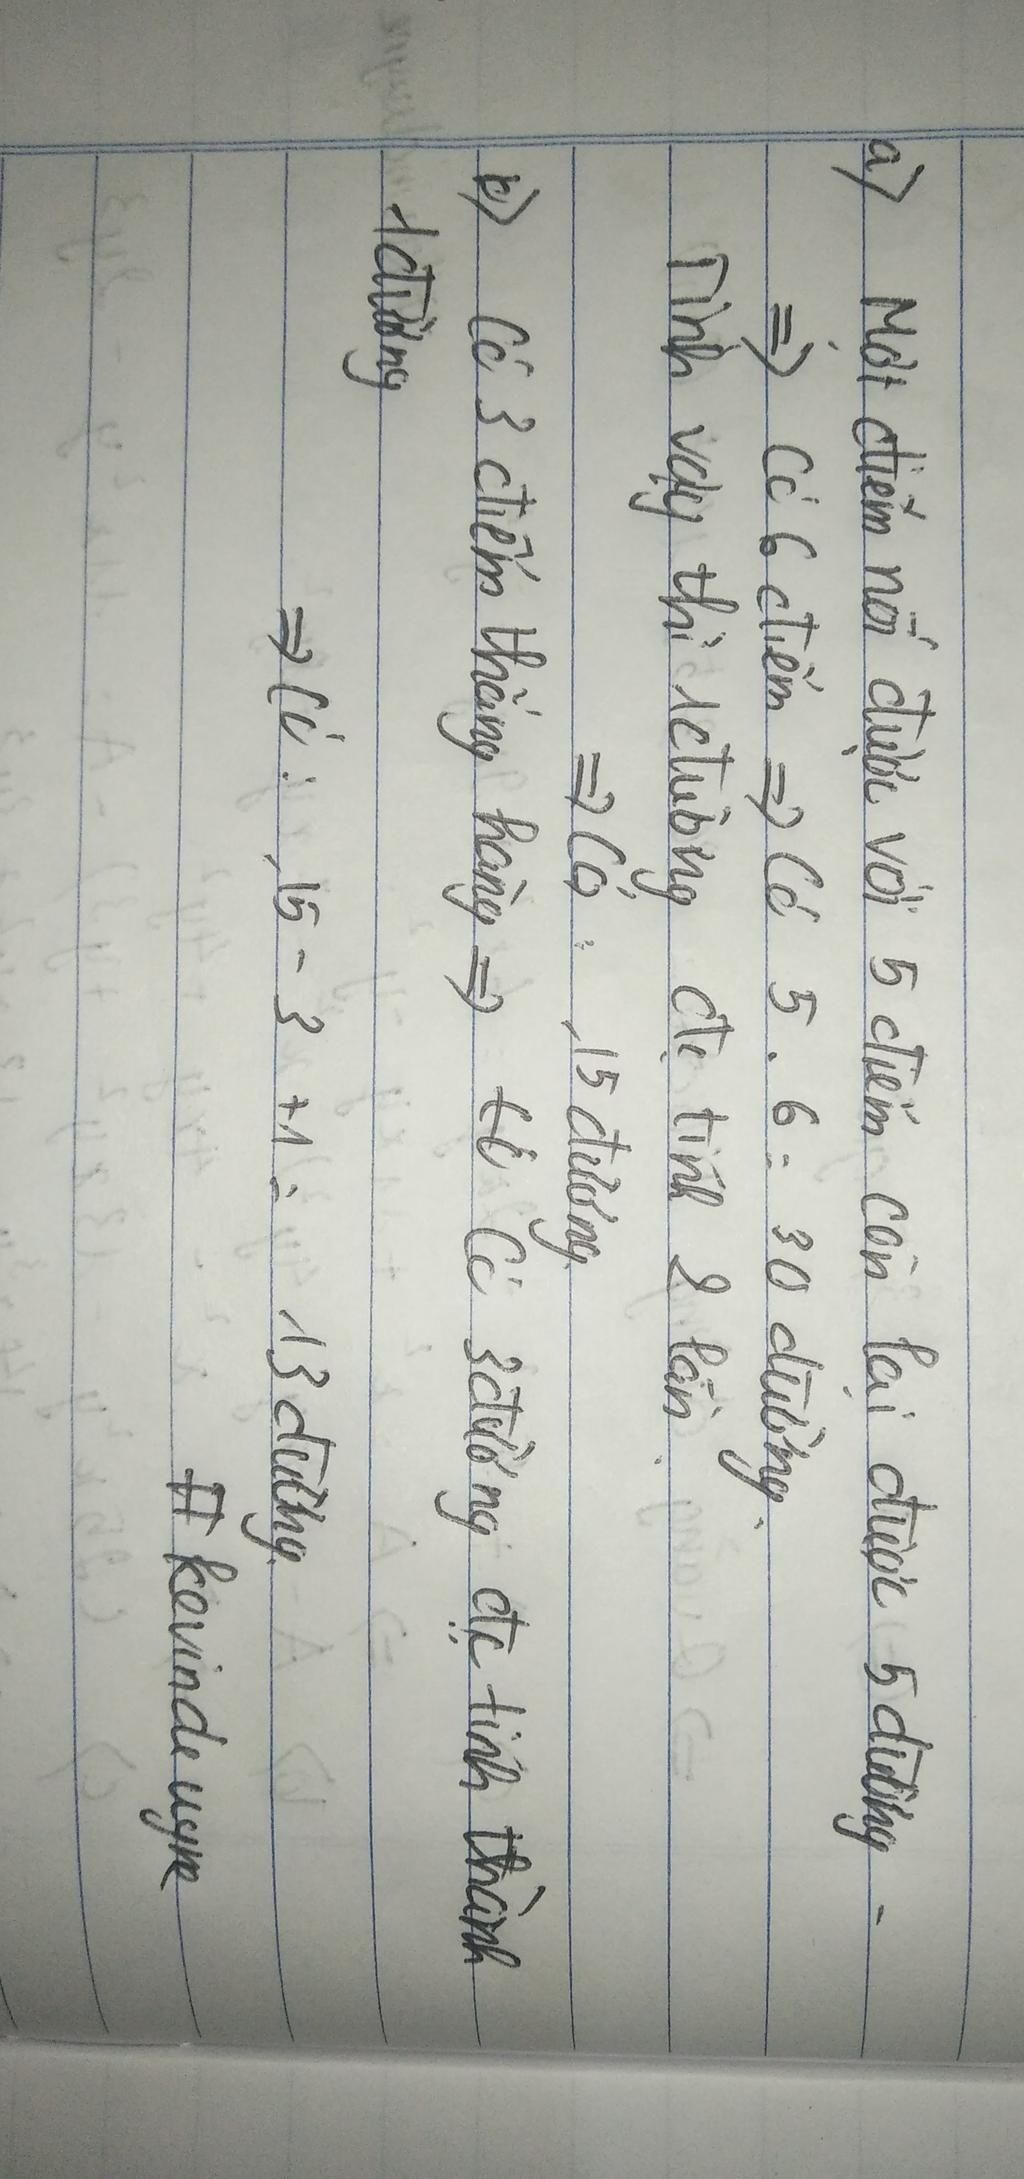 a) Mỗi điểm nối được với 5 điểm còn lại được 5 đường.
=> Có 6 điểm => Có 5 . 6 = 30 đường.
Tính vậy thì 1 đường đc tính 2 lần.
=> Có : 15 đường.
b) Có 3 điểm thẳng hàng => Có 3 đường đc tính thành
1 đường
=> Có : 15 - 3 + 1 = 13 đường.
# kovindeugne